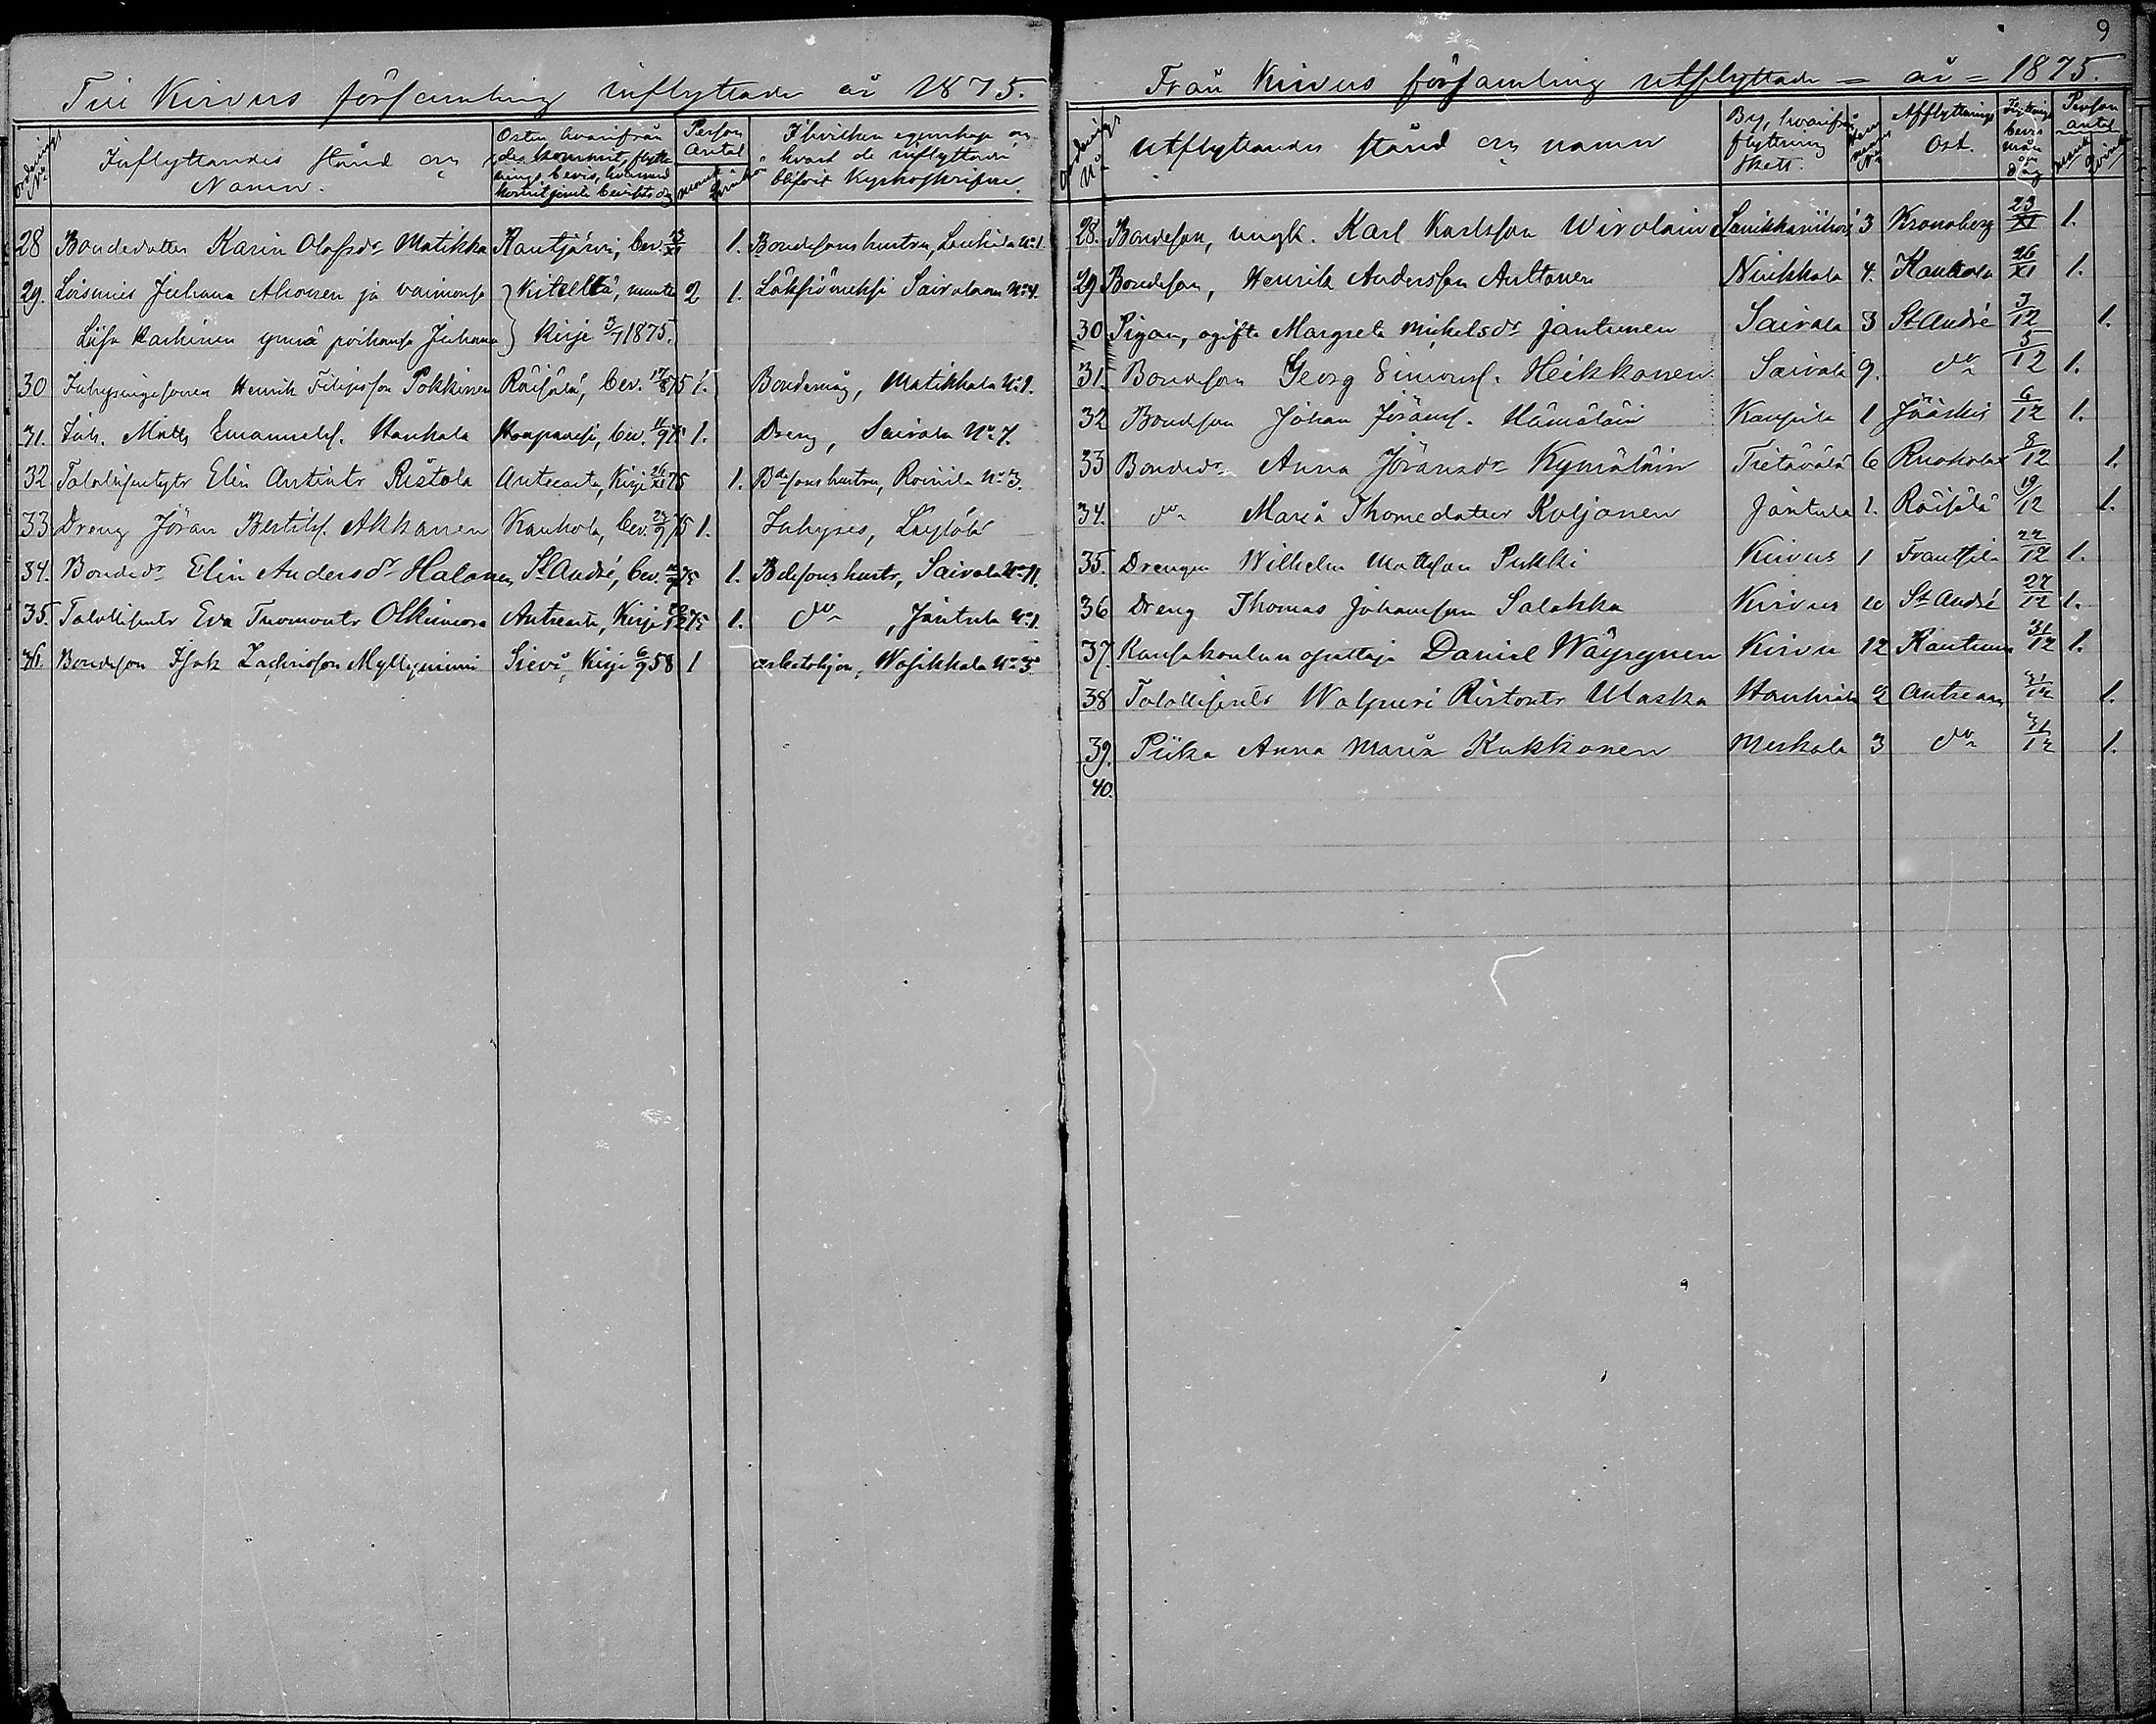 Till Kirvus församling inflyttade år 1875.
Ordnings No
Inflyttandes stånd och Namn.
Orten hvarifrån de kommit, flyttningsbevis,
Person Antal
mank. qvink.
I hvilken egenskap och hvart de inflyttade blifvit kyrkoskrifne.
28 Bondedotter Karin Olofsdr Matikka Rautjärvi, bev. 13/XI 1. Bondesons hustru, Leukida No 1.
29. Loismies Juhana Ahonen ja vaimonsa Kitellä, muutto 2 1. Läksiömeksi Sairalaan No 4.
Liisa Karhinen ynnä poikansa Juhana kirje 3/7 1875.
30 Inhysingesonen Henrik Filipsson Pokkinen Räisälä, bev. 17/8 75 1. Bondemåg, Matikkala No 1.
31. Inh. Matts Emanuelss. Haukala bev. 11/9 75 1. Dreng, Sairala No 7.
32 Talollisentytr Elin Antintr Ristola Antreasta, Kirje 26/XI 75 1. Bdesons hustru, Roinila No 3.
33 Dreng Jöran Bertilss. Akkanen Kaukola, bev. 23/9 75 1. Inhyses,
34. Bondedr Elin Andersdr Halonen St André, bev. 12/9 75 1. Bdesons hustr, Sairala No 11.
35. Talollisentr Eva Tuomontr Olkinuora Antreasta, Kirje 75 1. do , Jäntula No 1.
36. Bondeson Isak Zachrisson Mylliniemi Sievi, Kirje 6/9 58 1 arbetskjon, Wosikkala No 3.
9
Från Kirvus församling utflyttade = år = 1875.
Ordnings No
Utflyttandes stånd och namn
By, hvarifrån flyttning skett.
Hemmans No
Afflyttnings Ort.
Flyttnings bevis mån. och dag
Person antal
mank. qvink.
28. Bondeson, ungk. Karl Karlsson Wirolain 3 Kronoborg 23/XI 1.
29 Bondeson, Henrik Andersson Aultanen Ninikkala 4. Kaukola 26/XI 1.
30 Pigan, ogifta Margreta Mickelsdr Jantunen Sairala 3 St André 3/12 1.
31. Bondeson Georg Simonss. Heikkonen Sairala 9. do 5/12 1.
32 Bondeson Johan Jöranss. Hämäläin Kanfila 1 Jääskis 6/12 1.
33 Bondedr Anna Jöransdr Kymäläin Tietävälä 6 Ruokolax 8/12 1.
34. do Maria Thomedotter Koljonen Jäntula 1. Räisälä 19/12 1.
35. Drengen Wilhelm Mattsson Pukki Kirvus 1 Frantsila 22/12 1.
36 Dreng Thomas Johansson Salakka Kirvus 10 St André 27/12 1.
37 Kansakoulun opettaja Daniel Wäyrynen Kirvu 12 Rautuun 31/12 1.
38 Talollisentr Walpuri Ristontr Ulaska 2 Antreaan 31/12 1.
39. Piika Anna Maria Kukkonen Merkola 3 do 31/12 1.
40.